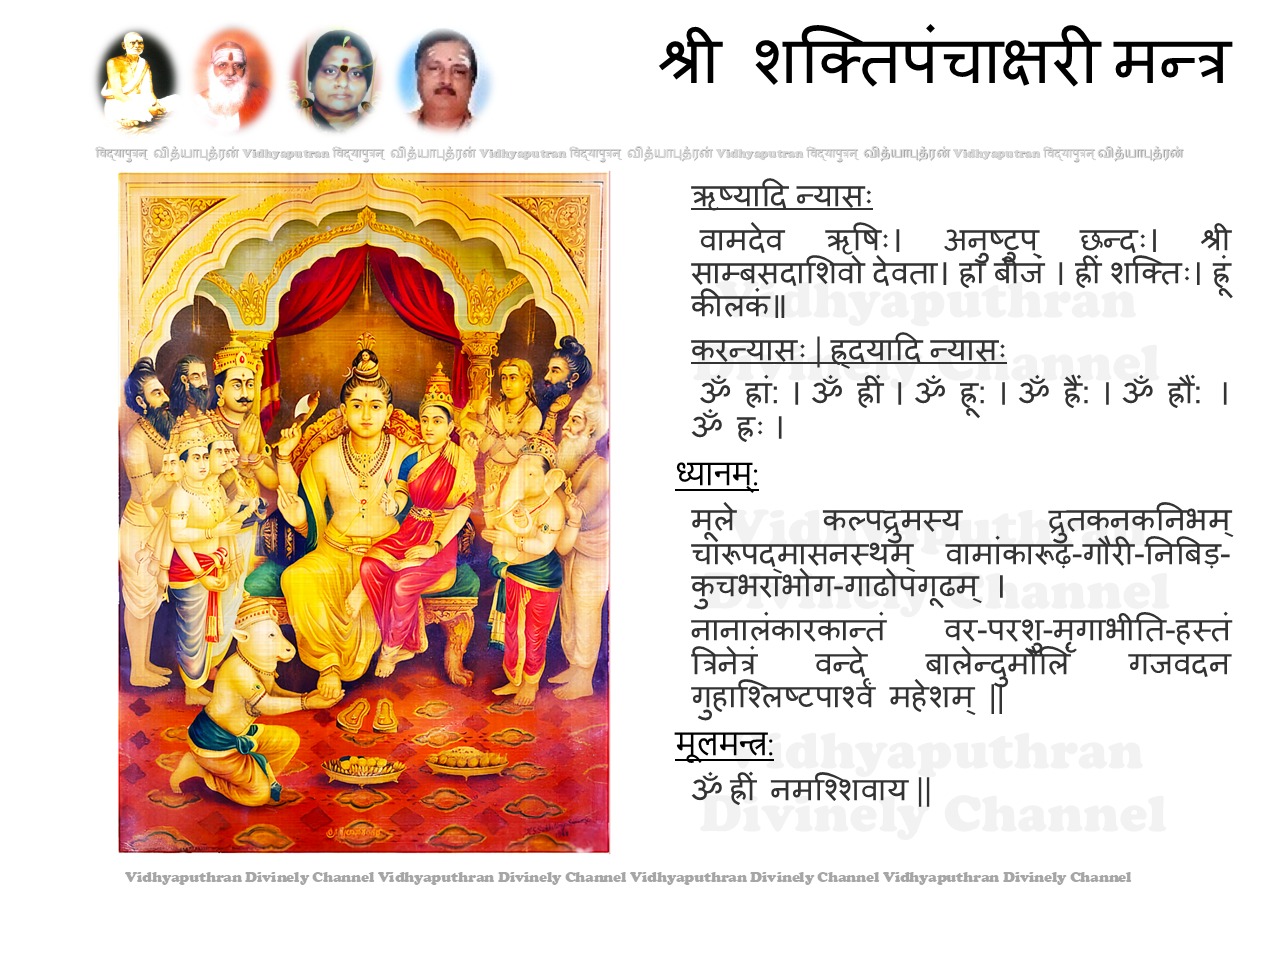 श्री शक्तिपंचाक्षरी मन्त्र
विद्यापुत्रन् வித்யாபுத்ரன் Vidhyaputran विद्यापुत्रन् வித்யாபுத்ரன் Vidhyaputran विद्यापुत्रन् வித்யாபுத்ரன் Vidhyaputran विद्यापुत्रन् வித்யாபுத்ரன் Vidhyaputran विद्यापुत्रन् வித்யாபுத்ரன்
ऋष्यादि न्यासः
वामदेव ऋषिः। अनुष्टुप् छन्दः। श्री
साम्बसदाशिवो देवता। ह्रां बीजं । ह्रीं शक्तिः। ह्रूं
कीलकं॥
Vidhyaputhran
करन्यासः | ह्रदयादि न्यासः
Divinely Channel
ॐ ह्रां: । ॐ ह्रीं । ॐ ह्रू: । ॐ ह्रैं: । ॐ ह्रौं: ।
ॐ ह्रः ।
ध्यानम्:
मूले कल्पद्रुमस्य द्रुतकनकनिभम्
Vidhyaputhran
चारूपद्मासनस्थम् वामांकारूढ़-गौरी-निबिड़-
कुचभराभोग-गाढोपगूढम् ।
Divinely Channel
नानालंकारकान्तं वर-परशु-मृगाभीति-हस्तं
त्रिनेत्रं वन्दे बालेन्दुमौलिं गजवदन
गुहाश्लिष्टपार्श्वं महेशम् ||
मूलमन्त्र:
Vidhyaputhran
ॐ ह्रीं नमश्शिवाय ||
Divinely Channel
Vidhyaputhran Divinely Channel Vidhyaputhran Divinely Channel Vidhyaputhran Divinely Channel Vidhyaputhran Divinely Channel